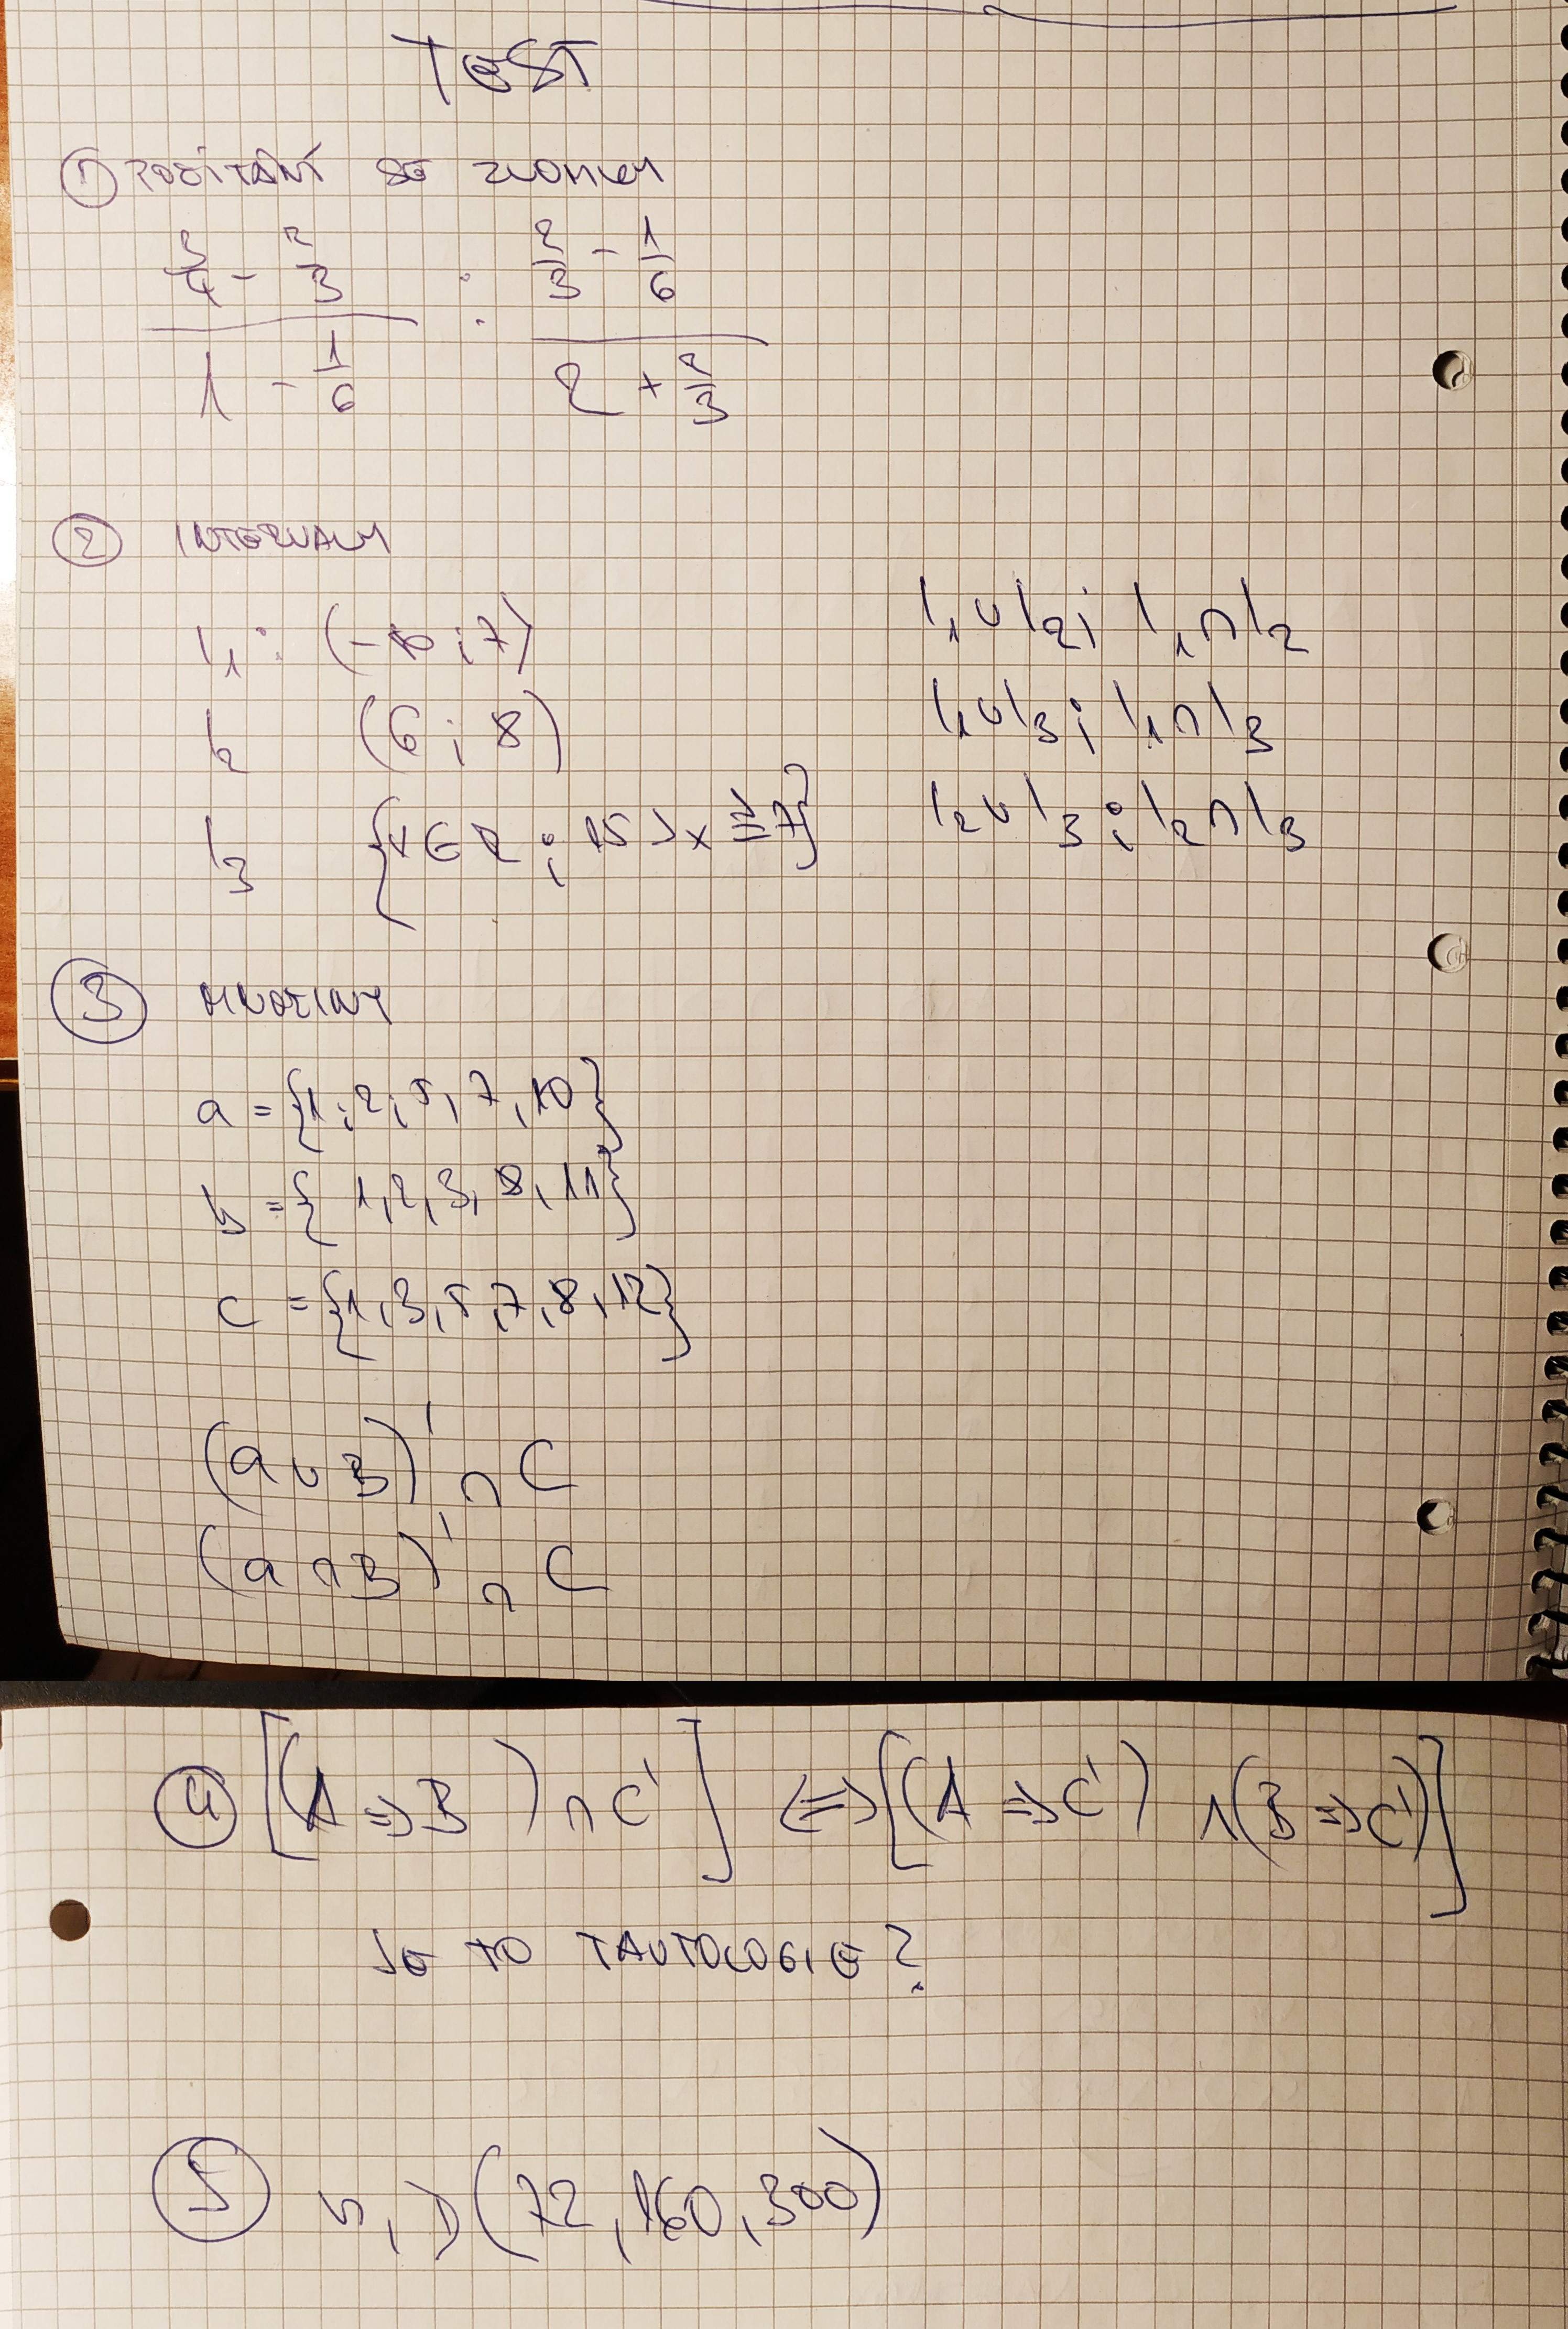 TEST
① POČÍTÁNÍ SE ZLOMKY
3/4 - 2/3 : 2/3 - 1/6
1 - 1/6 2 + 2/3
② INTERVALY
I₁ : (-∞ ; 7) I₁ ∪ I₂ ; I₁ ∩ I₂
I₂ (6 ; 8) I₁ ∪ I₃ ; I₁ ∩ I₃
I₃ {x ∈ R ; 15 > x ≥ 7} I₂ ∪ I₃ ; I₂ ∩ I₃
③ MNOŽINY
a = {1; 2; 5, 7, 10}
b = {1, 2, 3, 8, 11}
c = {1, 3, 5, 7, 8, 12}
(a ∪ B)' ∩ C
(a ∩ B)' ∩ C
④ [(A ⇒ B) ∩ C'] ⇔ [(A ⇒ C') ∧ (B ⇒ C')]
JE TO TAUTOLOGIE?
⑤ n, D (72, 160, 300)